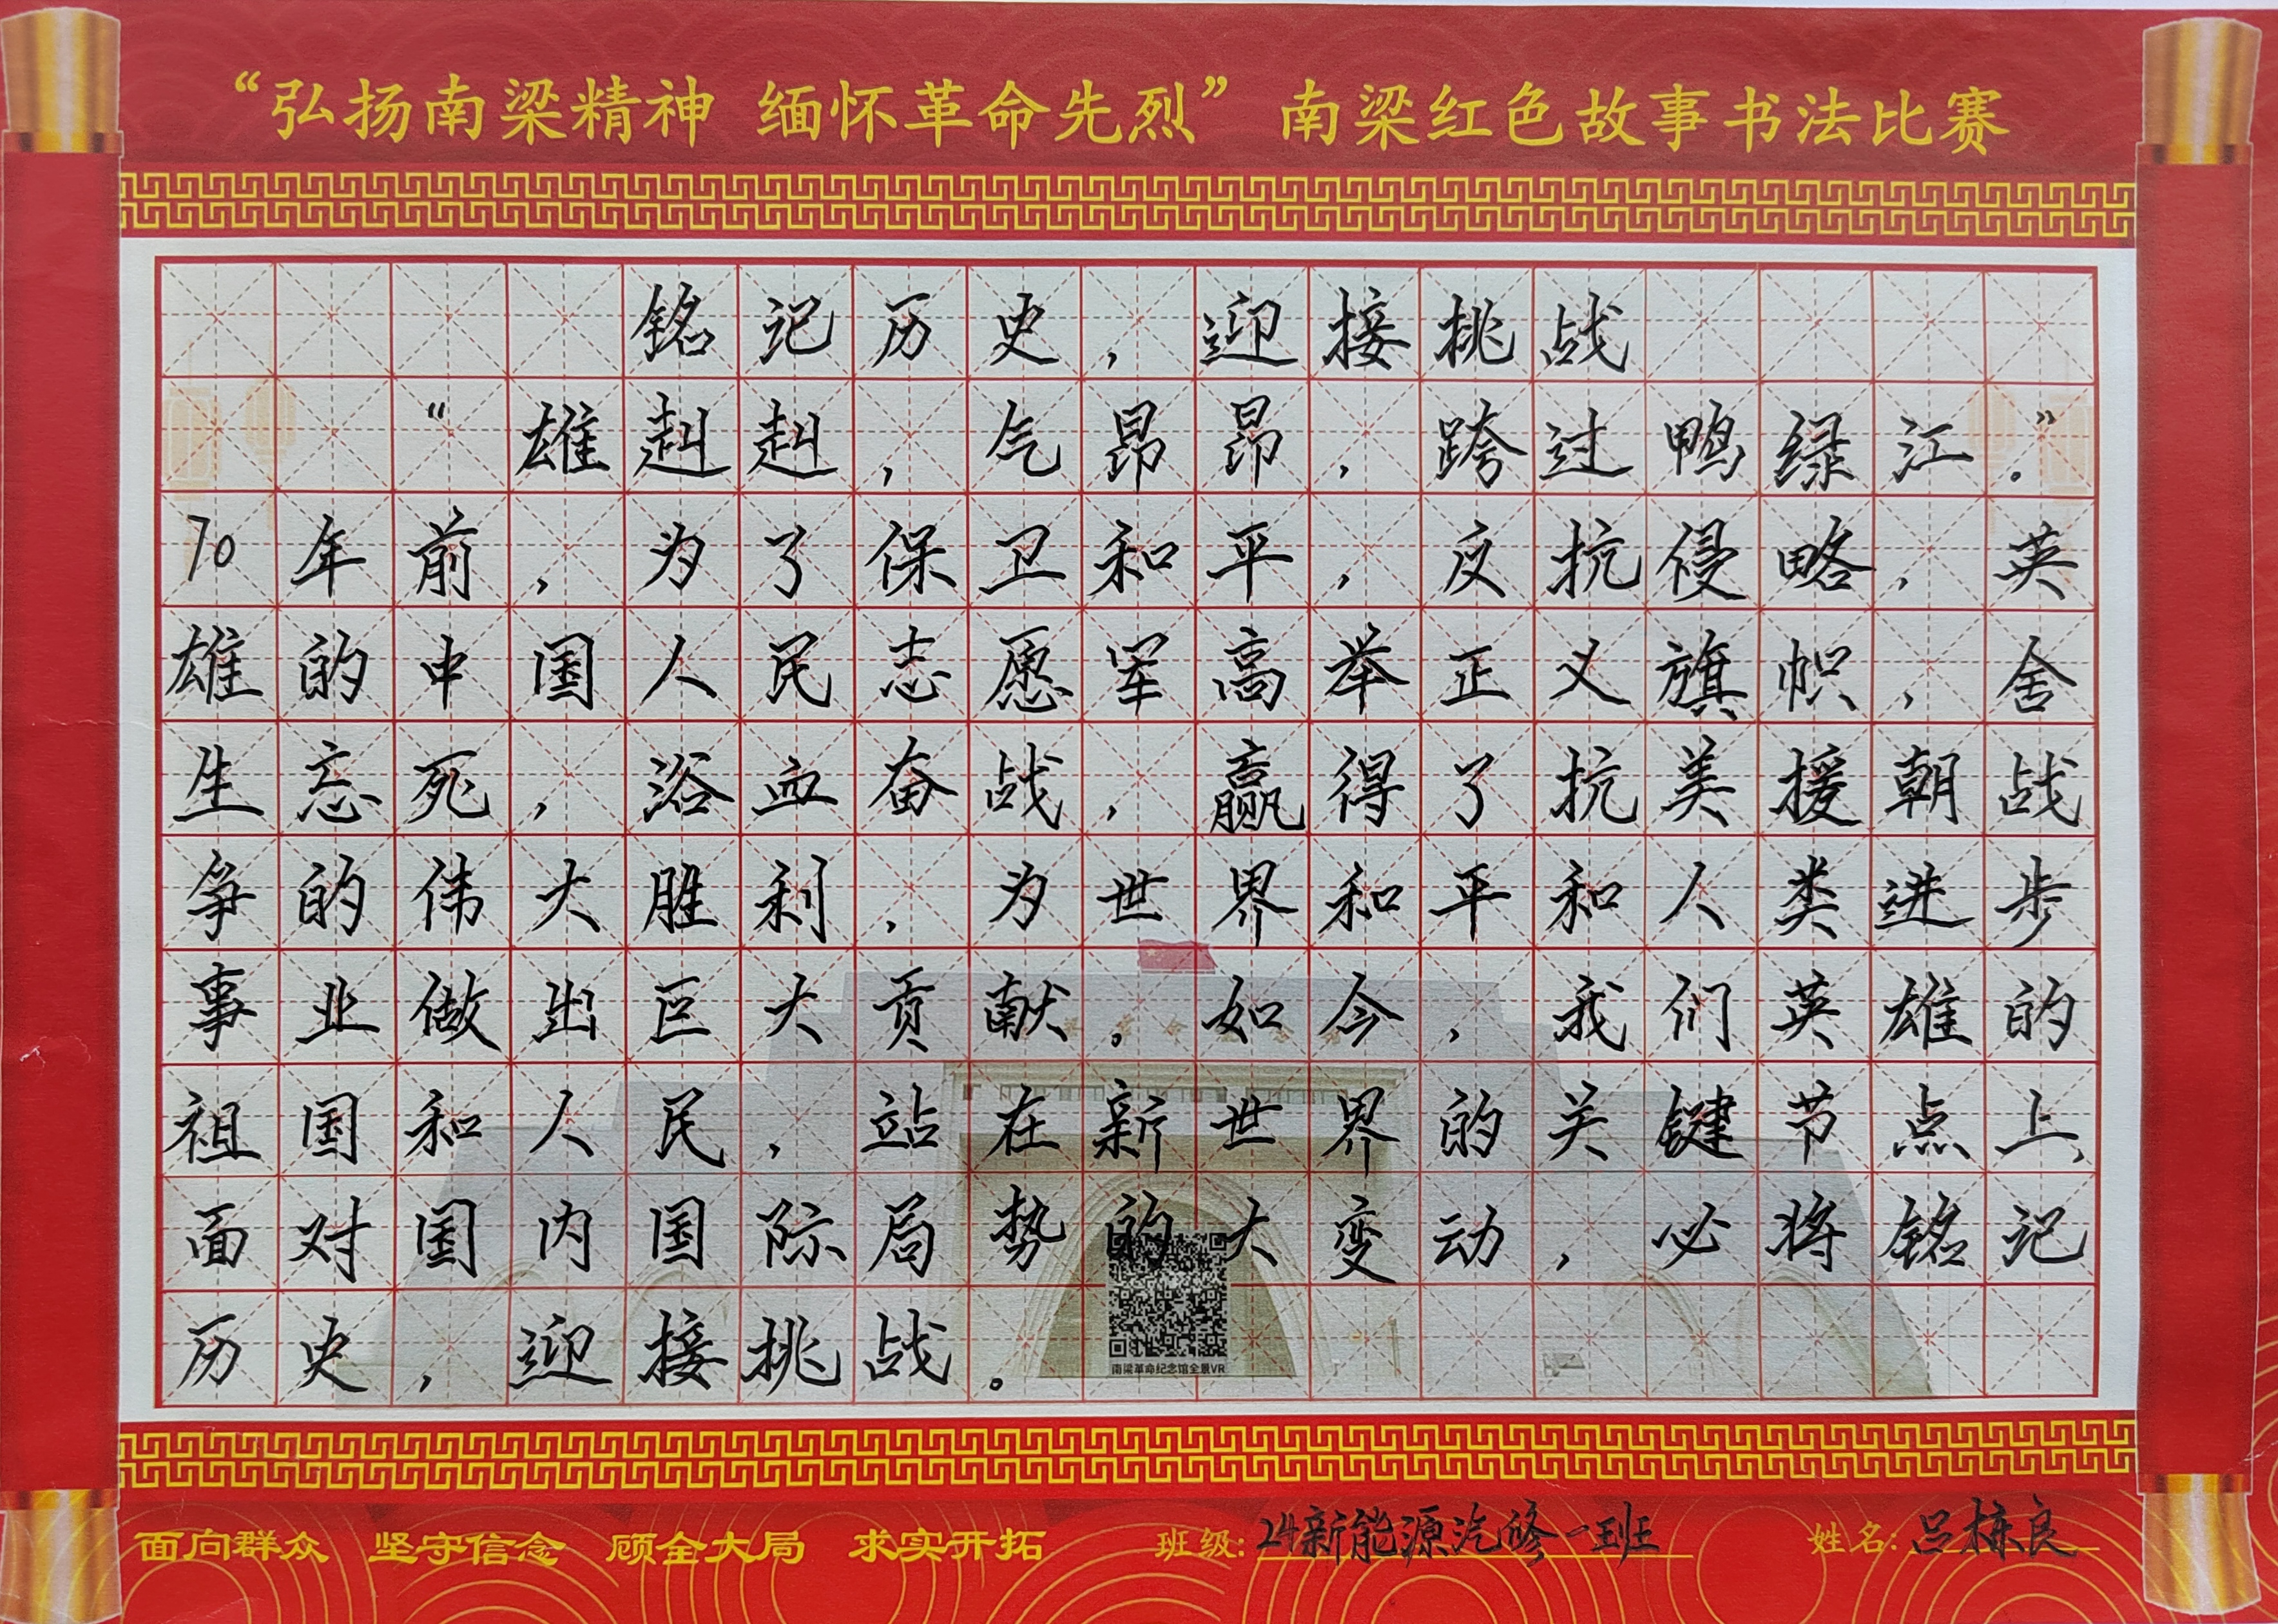 “弘扬南梁精神 缅怀革命先烈” 南梁红色故事书法比赛
铭记历史，迎接挑战
“雄赳赳，气昂昂，跨过鸭绿江。”
70年前，为了保卫和平，反抗侵略，英
雄的中国人民志愿军高举正义旗帜，舍
生忘死，浴血奋战，赢得了抗美援朝战
争的伟大胜利，为世界和平和人类进步
事业做出巨大贡献。如今，我们英雄的
祖国和人民，站在新世界的关键节点上，
面对国内国际局势的大变动，必将铭记
历史，迎接挑战。
南梁革命纪念馆全景VR
面向群众 坚守信念 顾全大局 求实开拓 班级：24新能源汽修一班 姓名：吕栋良